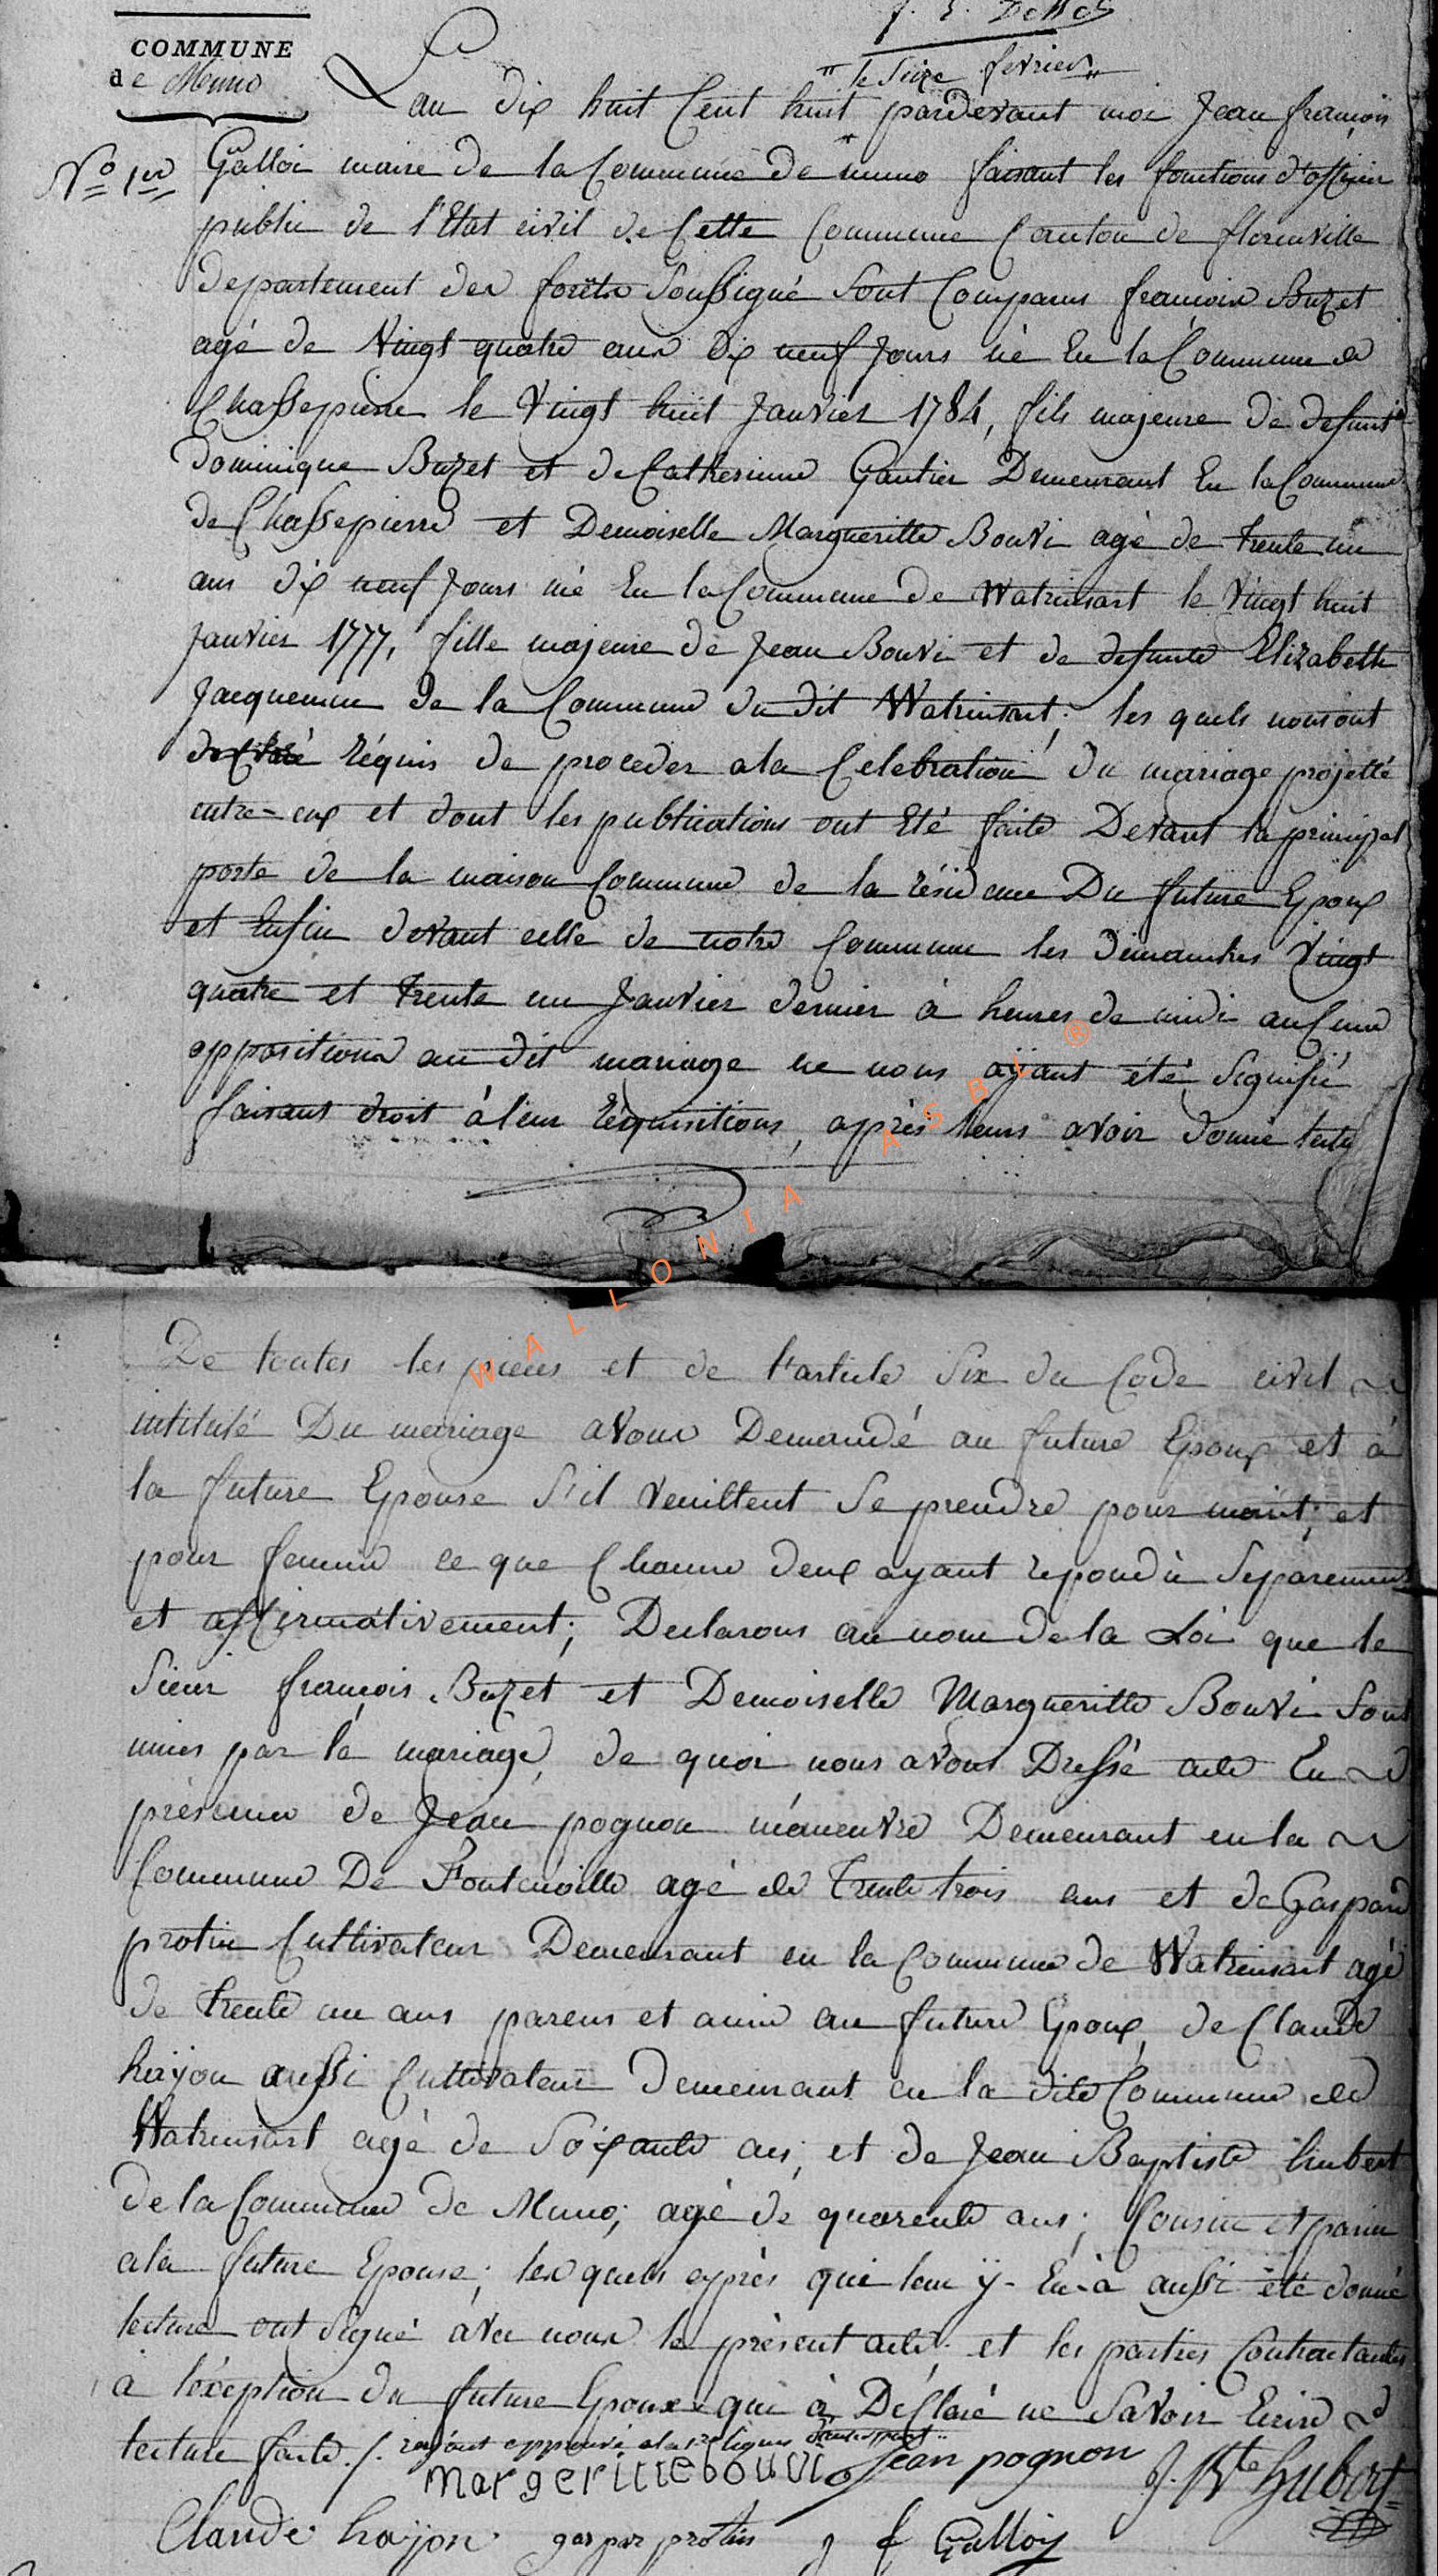 COMMUNE
de Muno
" le Seize fevrier "
N° 1er
L'an dix huit Cent huit pardevant moi Jean françois
Galloi maire de la Commune de muno faisant les fonctions d'officier
public de l'Etat civil de Cette Commune Canton de florenville
departement des forêts Soussigné Sont Comparus françois Buzet
agé de Vingt quatre ans dix neuf Jours né En la Commune de
Chassepierre le Vingt huit Janvier 1784, fils majeure de defunt
Dominique Buzet et de Catherinne Gautier Demeurant En la Commune
de Chassepierre et Demoiselle Margueritte Bouvi agé de trente un
ans dix neuf Jours né En la Commune de Watrinsart le Vingt huit
Janvier 1777, fille majeure de Jean Bouvi et de defunte Elizabethe
Jacquemin de la Commune du dit Watrinsart; les quels nous ont
réquis de proceder a la Celebration du mariage projetté
entre-eux et dont les publications ont Eté faite Devant la principal
porte de la maison Commune de la résidence Du future Epoux
et Enfin devant celle de notre Commune les dimanches Vingt
quatre et trente un Janvier dernier à heures de midi aucune
oppositions au dit mariage ne nous aÿant été Signifié
faisant droit à leur réquisitions, après leurs avoir donné lecture
WALLONIA ASBL ®
De toutes les pieces et de l'article Six du Code civil
intitulé Du mariage avons Demandé au future Epoux et à
la future Epouse S'il veuillent Se prendre pour marit; et
pour femme ce que Chacun deux ayant repondù Séparement
et affirmativement; Declarons au nom de la Loi que le
Sieur françois Buzet et Demoiselle Margueritte Bouvi Sont
unies par le mariage, de quoi nous avons Dressé acte En
présence de Jean pognon manœuvre Demeurant en la
Commune De Fontenoille agé de trente trois ans et de Gaspard
protin Cultivateur Demeurant en la Commune de Watrinsart agé
de trente un ans parens et amis au future Epoux, de Claude
haÿon aussi Cultivateur demeurant en la dite Commune de
Watrinsart agé de Soixante ans; et de Jean Baptiste hubert
de la Commune de Muno; agé de quarente ans; Cousin et
a la future Epouse; les quels après qui leur ÿ En à aussi été donné
lecture ont Signé avec nous le présent acte et les parties Contractantes
à l'éxeption du future Epoux qui à Déclaré ne Savoir Ecrire
lecture faite ./.
margeritte bouvi Jean pognon J. Bte hubert
Claude hayon gaspar protin J f Galloy